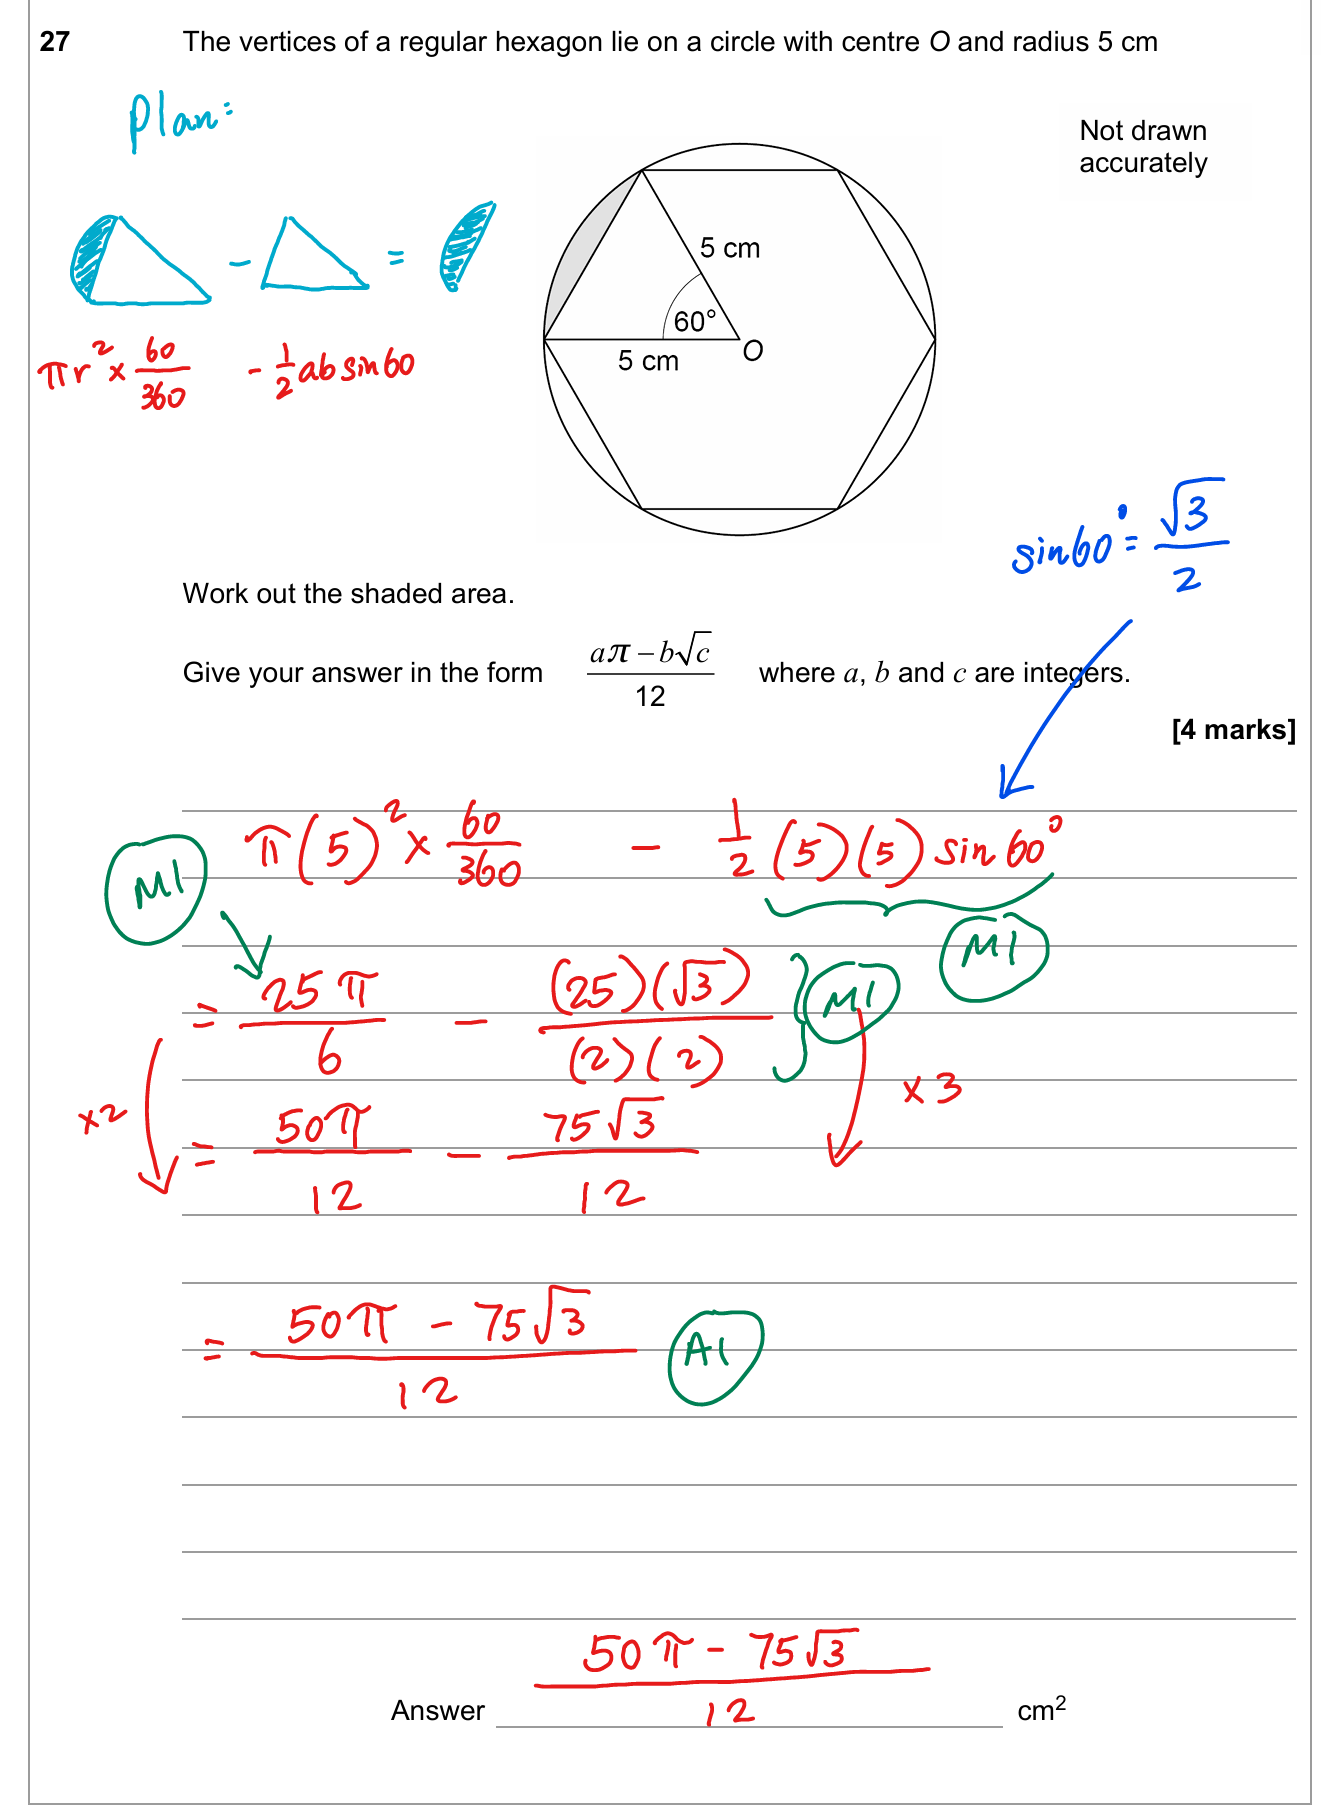 27 The vertices of a regular hexagon lie on a circle with centre O and radius 5 cm
Plan:
Not drawn
accurately
- =
5 cm
60°
O
5 cm
πr² × 60/360 - 1/2 ab sin 60
sin 60° = √3/2
Work out the shaded area.
Give your answer in the form (aπ – b√c)/12 where a, b and c are integers.
[4 marks]
M1 π(5)² × 60/360 - 1/2 (5)(5) sin 60°
M1
= 25π/6 - (25)(√3)/(2)(2) M1
×2 ×3
= 50π/12 - 75√3/12
= (50π - 75√3)/12 A1
Answer (50π - 75√3)/12 cm²